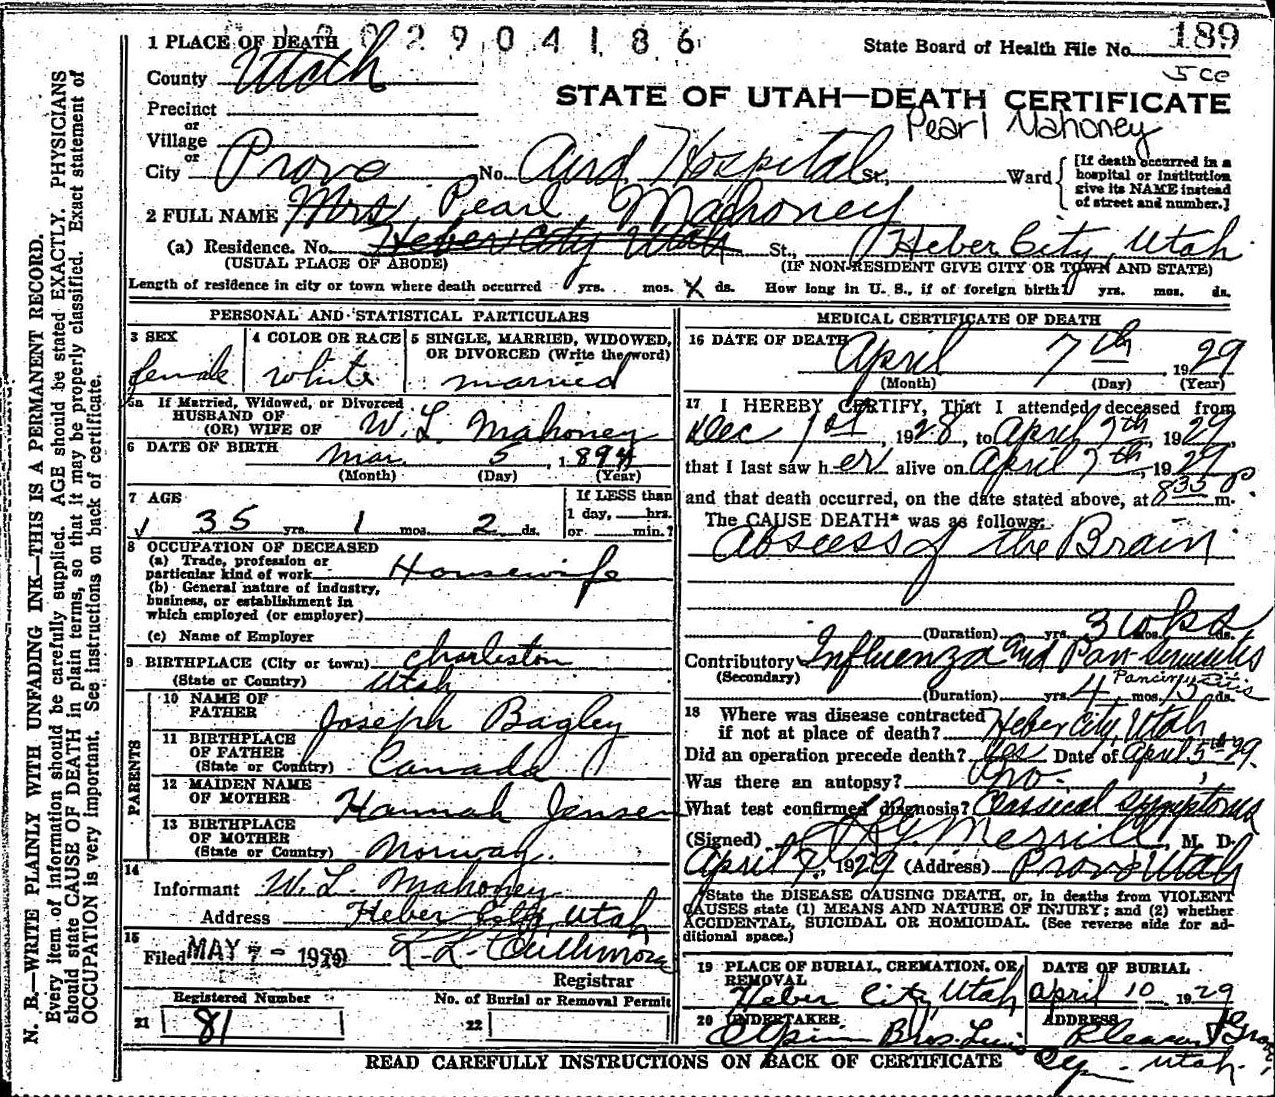 1 PLACE OF DEATH
2904186
State Board of Health File No. 189
County Utah
5 ce
STATE OF UTAH—DEATH CERTIFICATE
Pearl Mahoney
Precinct
or
Village
or
City Provo No. Aird Hospital St., Ward
[If death occurred in a hospital or institution give its NAME instead of street and number.]
2 FULL NAME Mrs. Pearl Mahoney
(a) Residence. No. Heber City Utah St., Heber City, Utah
(USUAL PLACE OF ABODE) (IF NON-RESIDENT GIVE CITY OR TOWN AND STATE)
Length of residence in city or town where death occurred yrs. mos. X ds. How long in U. S., if of foreign birth? yrs. mos. ds.
PERSONAL AND STATISTICAL PARTICULARS
3 SEX
female
4 COLOR OR RACE
white
5 SINGLE, MARRIED, WIDOWED, OR DIVORCED (Write the word)
married
5a If Married, Widowed, or Divorced
HUSBAND OF
(OR) WIFE OF W. L. Mahoney
6 DATE OF BIRTH Mar. 5, 1894
(Month) (Day) (Year)
7 AGE
35 yrs. 1 mos. 2 ds.
If LESS than
1 day, hrs.
or min.?
8 OCCUPATION OF DECEASED
(a) Trade, profession or
particular kind of work Housewife
(b) General nature of industry,
business, or establishment in
which employed (or employer)
(c) Name of Employer
9 BIRTHPLACE (City or town) Charleston
(State or Country) Utah
PARENTS
10 NAME OF
FATHER Joseph Bagley
11 BIRTHPLACE
OF FATHER
(State or Country) Canada
12 MAIDEN NAME
OF MOTHER Hannah Jensen
13 BIRTHPLACE
OF MOTHER
(State or Country) Norway.
14
Informant W. L. Mahoney
Address Heber City, Utah
15
Filed MAY 7 - 1929
Registrar
Registered Number
21 81
No. of Burial or Removal Permit
22
MEDICAL CERTIFICATE OF DEATH
16 DATE OF DEATH
April 7th, 1929
(Month) (Day) (Year)
17 I HEREBY CERTIFY, That I attended deceased from
Dec 1st, 1928, to April 7th, 1929,
that I last saw her alive on April 7th, 1929
and that death occurred, on the date stated above, at 835 P m.
The CAUSE DEATH* was as follows:
Abscess of the Brain
(Duration) yrs. 3 wks mos. ds.
Contributory Influenza and Pan-Sinusitis
(Secondary)
(Duration) yrs. 4 mos. 15 ds.
18 Where was disease contracted
if not at place of death? Heber City, Utah
Did an operation precede death? Yes Date of April 5th 29.
Was there an autopsy? no.
What test confirmed diagnosis? Classical Symptoms
(Signed) Merrill, M. D.
April 7, 1929 (Address) Provo Utah
*State the DISEASE CAUSING DEATH, or, in deaths from VIOLENT
CAUSES state (1) MEANS AND NATURE OF INJURY; and (2) whether
ACCIDENTAL, SUICIDAL OR HOMICIDAL. (See reverse side for ad-
ditional space.)
19 PLACE OF BURIAL, CREMATION, OR
REMOVAL
Heber City, Utah
DATE OF BURIAL
April 10 1929
20 UNDERTAKER
Olpin Bros.
ADDRESS
Pleasant Grove,
Utah.
READ CAREFULLY INSTRUCTIONS ON BACK OF CERTIFICATE
N. B.—WRITE PLAINLY WITH UNFADING INK—THIS IS A PERMANENT RECORD.
Every item of information should be carefully supplied. AGE should be stated EXACTLY. PHYSICIANS
should state CAUSE OF DEATH in plain terms, so that it may be properly classified. Exact statement of
OCCUPATION is very important. See instructions on back of certificate.